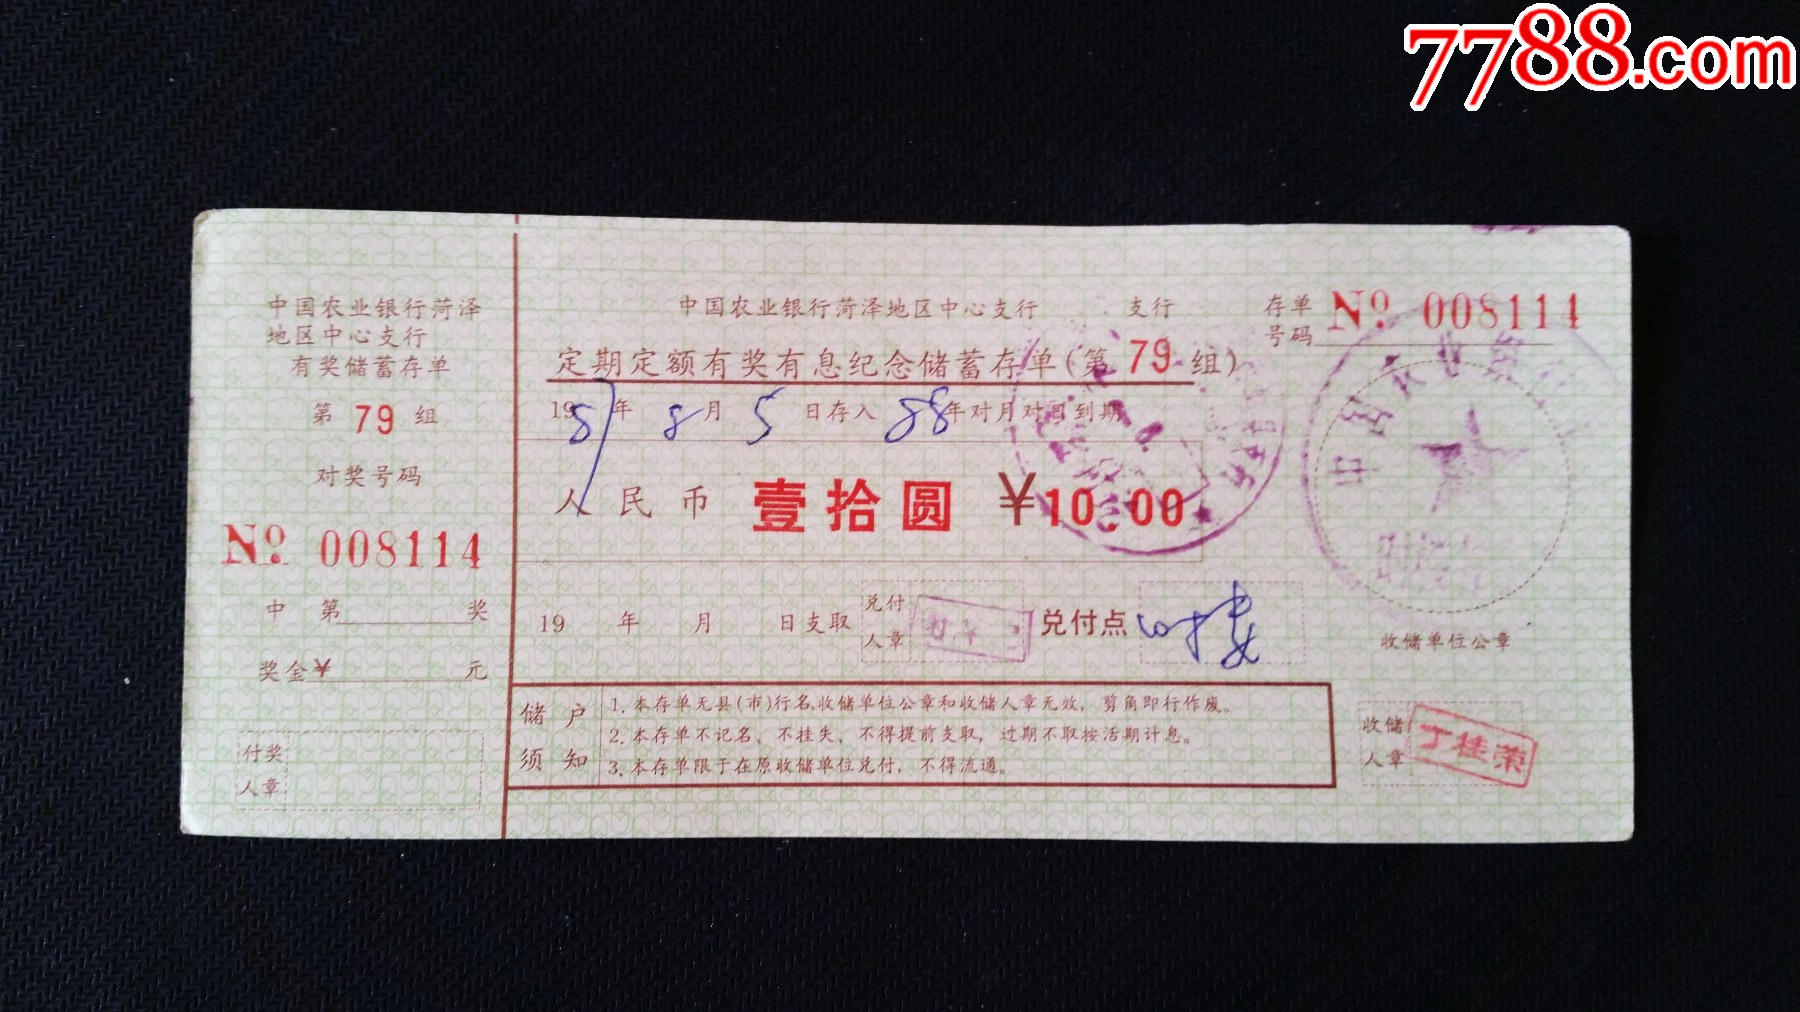 7788.com
中国农业银行菏泽
地区中心支行
有奖储蓄存单
第 79 组
对奖号码
No 008114
中 第 奖
奖金¥ 元
付奖
人章
中国农业银行菏泽地区中心支行 支行
存单
号码 No 008114
定期定额有奖有息纪念储蓄存单(第 79 组)
1987年 8月 5日存入 88年对月对日到期
人民币 壹拾圆 ¥10.00
19 年 月 日支取
兑付
人章
兑付点
收储单位公章
储户
须知
1. 本存单无县(市)行名、收储单位公章和收储人章无效，剪角即行作废。
2. 本存单不记名、不挂失、不得提前支取，过期不取按活期计息。
3. 本存单限于在原收储单位兑付，不得流通。
收储
人章
丁桂荣